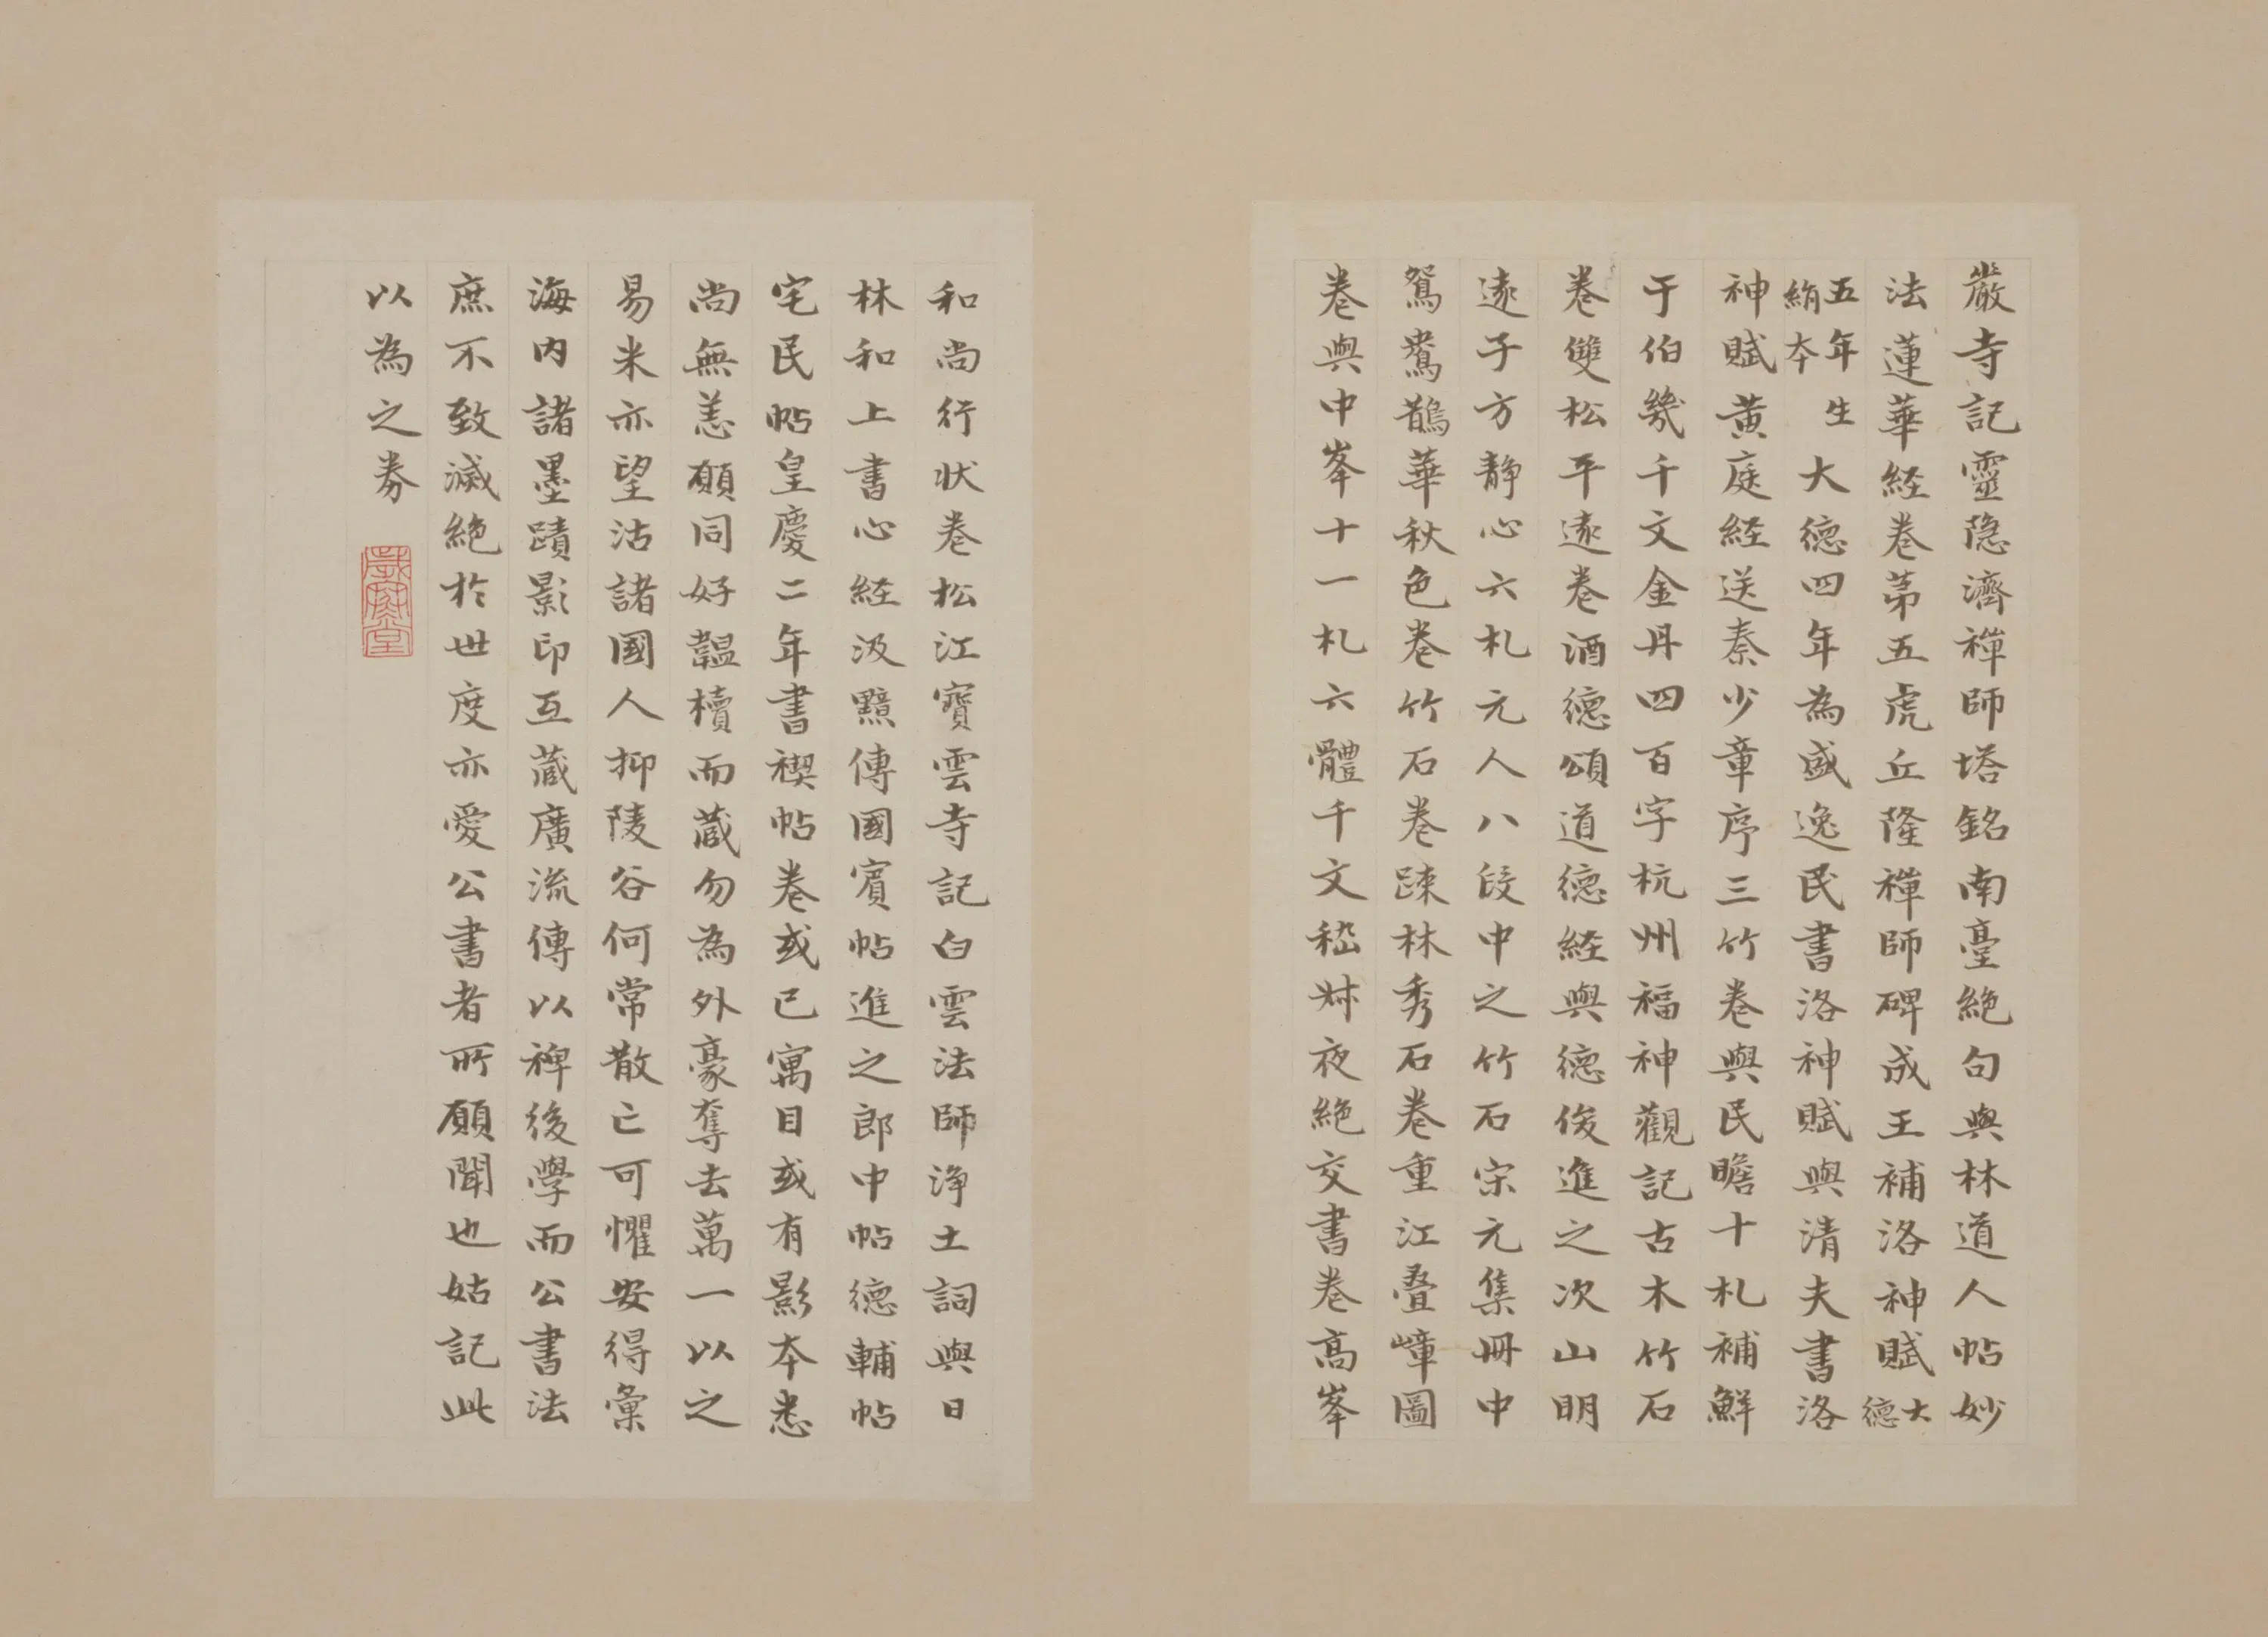 嚴寺記靈隱濟禪師塔銘南臺絕句與林道人帖妙
法蓮華経卷苐五虎丘隆禪師碑成王補洛神賦大德
五年生絹本大德四年為盛逸民書洛神賦與清夫書洛
神賦黃庭経送秦少章序三竹卷與民瞻十札補鮮
于伯幾千文金丹四百字杭州福神觀記古木竹石
卷雙松平遠卷酒德頌道德経與德俊進之次山明
遠子方靜心六札元人八段中之竹石宋元集冊中
鴛鴦鵲華秋色卷竹石卷踈林秀石卷重江疊嶂圖
卷與中峯十一札六體千文嵇叔夜絕交書卷高峯
和尚行狀卷松江寶雲寺記白雲法師淨土詞與日
林和上書心経汲黯傳國賓帖進之郎中帖德輔帖
宅民帖皇慶二年書禊帖卷或已寓目或有影本悉
尚無恙願同好韞櫝而藏勿為外豪奪去萬一以之
易米亦望沽諸國人抑陵谷何常散亡可懼安得彙
海內諸墨蹟影印互藏廣流傳以裨後學而公書法
庶不致滅絕於世度亦愛公書者所願聞也姑記此
以為之券